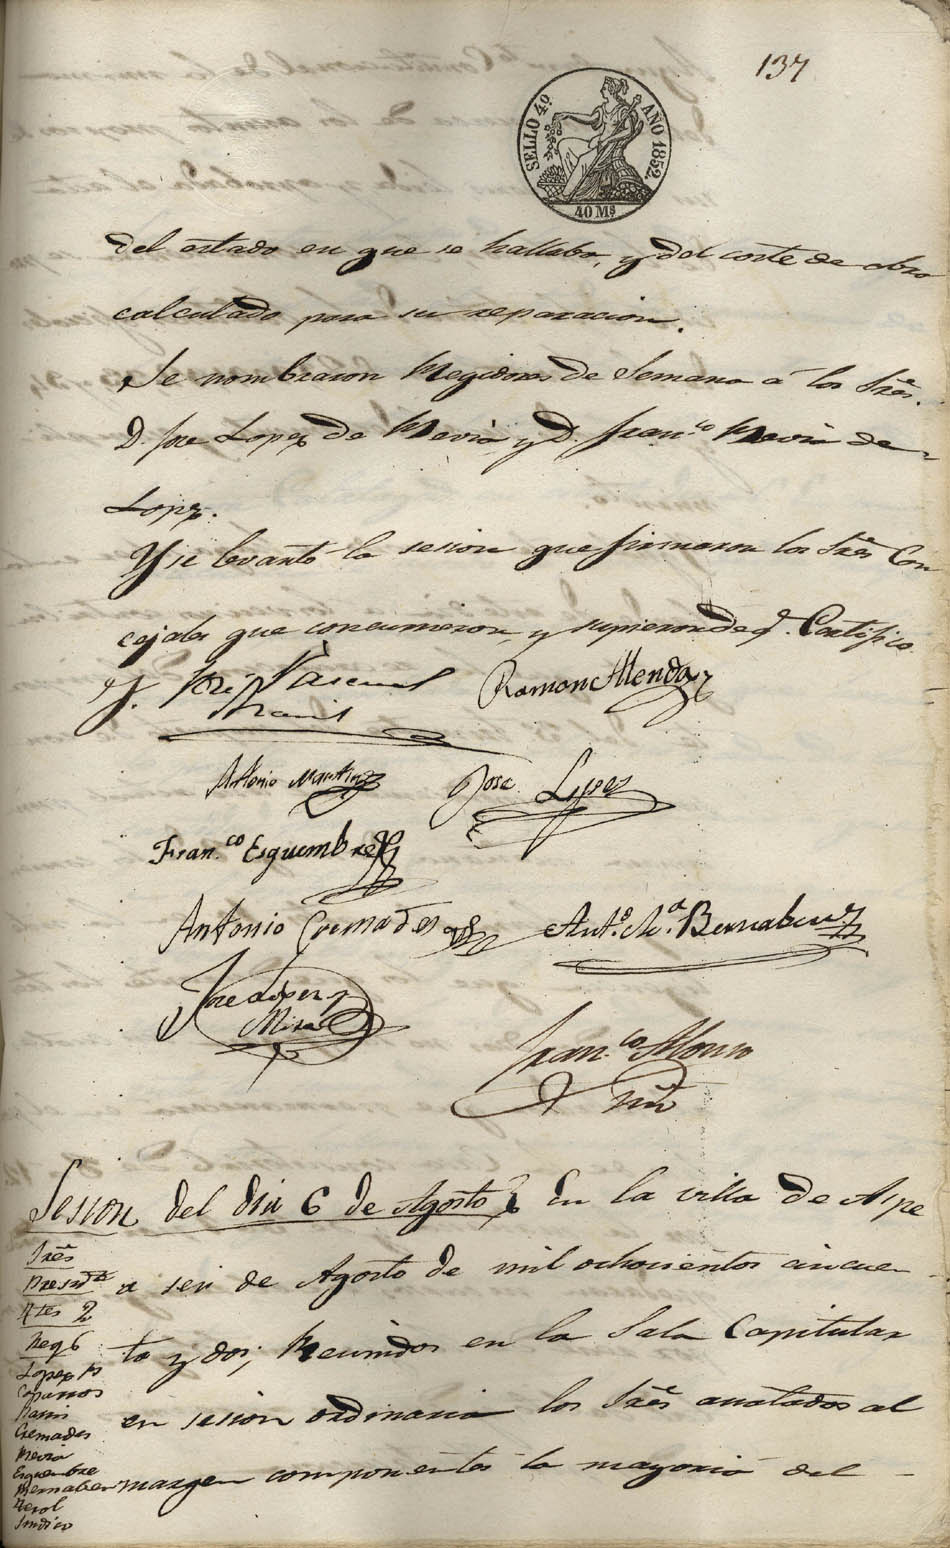 137
SELLO 4º. AÑO 1852.
40 Ms
del estado en que se hallaba, y del coste de obra
calculado para su reparacion.
Se nombraron Regidores de Semana á los Sres.
D. Jose Lopez de y D. Franco de
Lopz.
Y se levantó la sesion que firmaron los Sres Con
cejales que concurrieron y supieron de q. Certifico
Jose Pascual
Ramon Alenda
Antonio Martinz
Jose Lopez
Fran.co Esquembre
Antonio Cremades
Antº. Mª. Bernabeu
Jose Lopez y
Mira
Fran.co Alonso
Sesion del dia 6 de Agosto En la villa de Aspe
a seis de Agosto de mil ochocientos cincuen
ta y dos; Reunidos en la Sala Capitular
en sesion ordinaria los Sres anotados al
margen componentes la mayoria del
Sres
Presidte
Ttes 2
Reg 6
Lopez
Caparros
Cremades
Esquembre
Bernabeu
Terol
Sindico